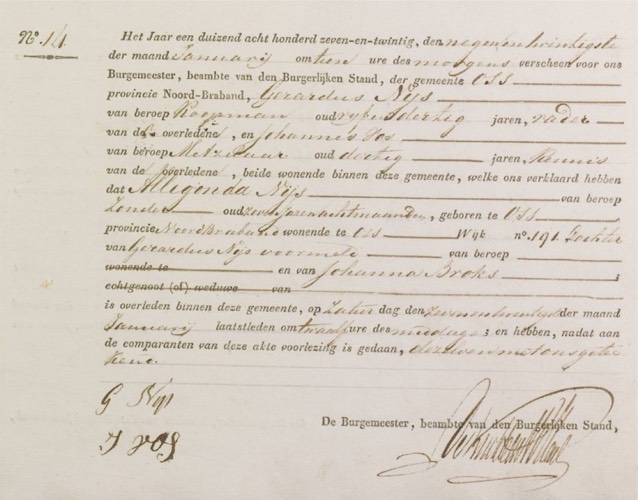 Nº. 14.
Het Jaar een duizend acht honderd zeven-en-twintig, den negenentwintigste
der maand Januarij om tien ure des morgens verscheen voor ons
Burgemeester, beambte van den Burgerlijken Stand, der gemeente Oss
provincie Noord-Braband, Gerardus Nijs
van beroep Koopman oud vijfendertig jaren, vader
van de overledene, en Johannis Vos
van beroep Metzelaar oud dertig jaren, Kennis
van de overledene, beide wonende binnen deze gemeente, welke ons verklaard hebben
dat Allegonda Nijs van beroep
Zonder oud zeven jaren acht maanden, geboren te Oss
provincie Noord Braband wonende te Oss Wijk nº. 191. Dochter
van Gerardus Nijs voormeld van beroep
wonende te en van Johanna Broks
echtgenoot (of) weduwe van
is overleden binnen deze gemeente, op Zatur dag den zevenentwintigste der maand
Januarij laatstleden om twaalf ure des middags; en hebben, nadat aan
de comparanten van deze akte voorlezing is gedaan, dezelven met ons gete
kend.
G Nijs
De Burgemeester, beambte van den Burgerlijken Stand,
J VOS